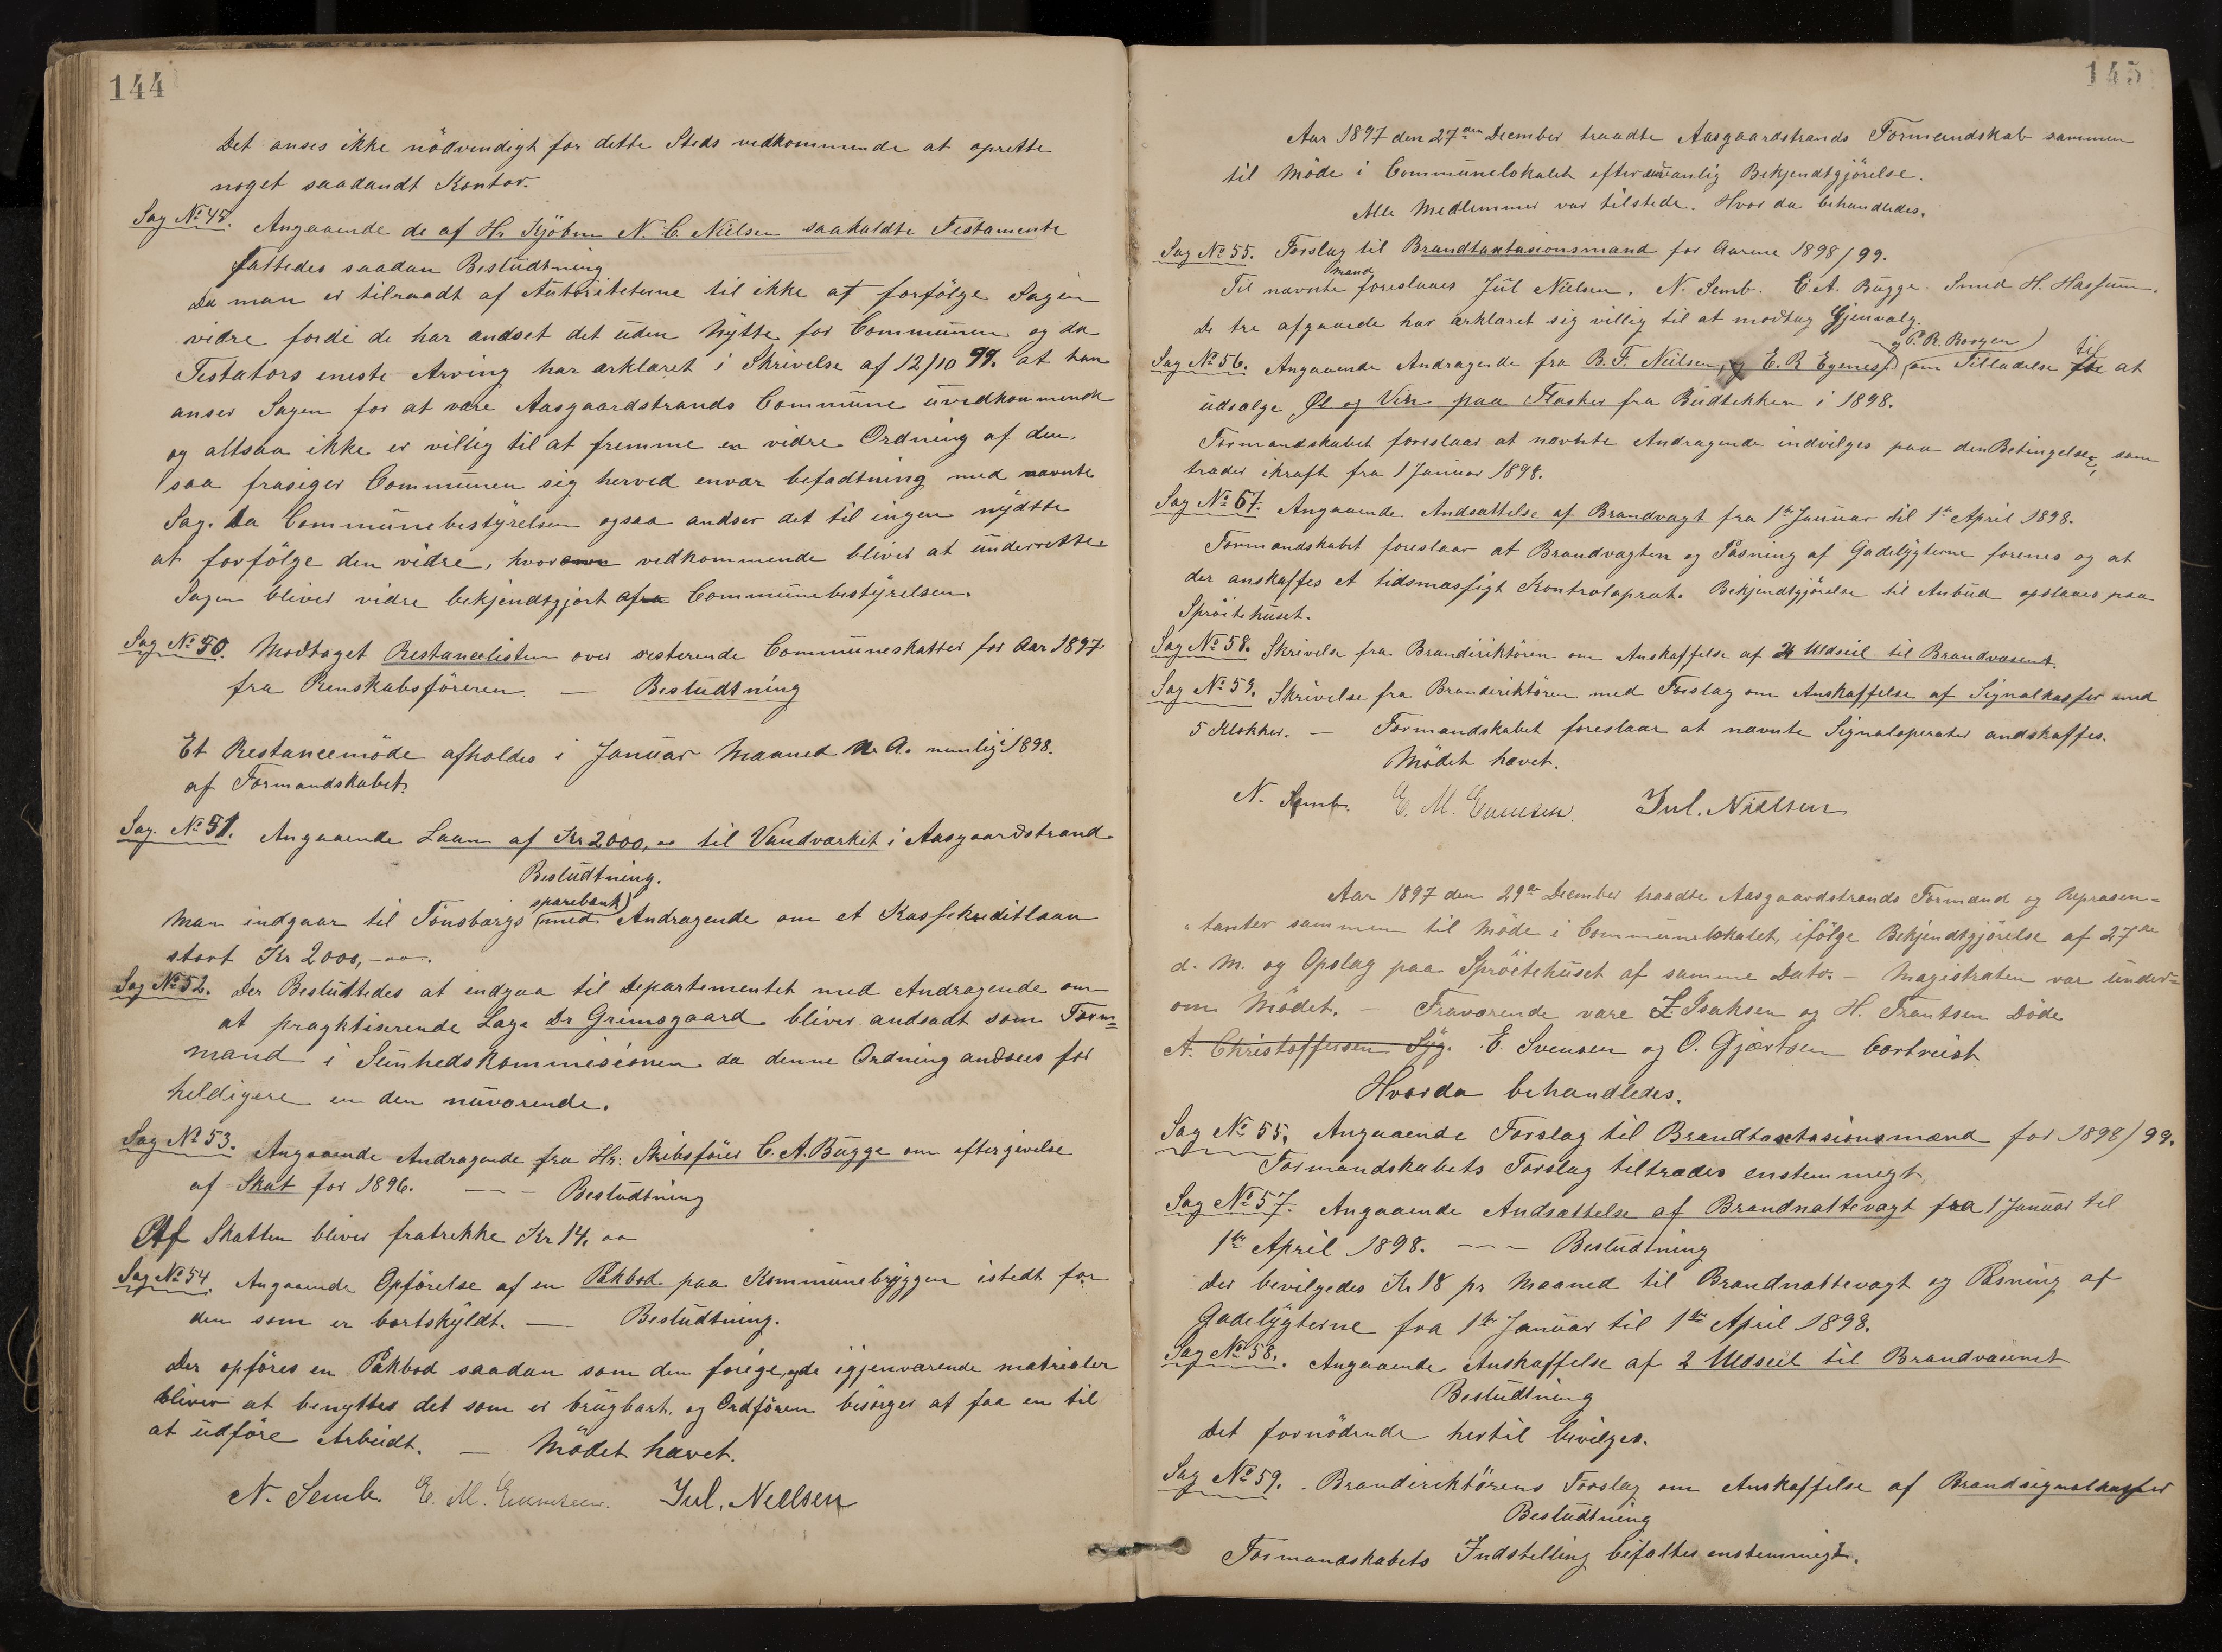 144
Det anses ikke nödvendigt for dette Steds vedkommende at oprette
noget saadandt Kontor.
Sag No 49. Angaaende de af Hr Kjöbm N. C. Nielsen saakaldte Testamente
fattedes saadan Besludtning
Da man er tilraadt af Autoriteterne til ikke at forfölge Sagen
vidre fordi de har andset det uden Nytte for Communen og da
Testators eneste Arving har ærklæret i Skrivelse af 12/10 97. at han
anser Sagen for at være Aasgaardstrands Commune uvedkommende
og altsaa ikke er villig til at fremme en vidre Ordning af den.
saa frasiger Communen sig herved envær befadtning med nævnte
Sag. Da Communebestyrelsen ogsaa andser det til ingen nydtte
at forfölge den vidre, hvorom vedkommende bliver at underrette
Sagen bliver vidre bekjendtgjort af Communebestyrelsen.
Sag No 50. Modtaget Restancelisten over resterende Communeskatter for Aar 1897
fra Renskabsföreren. — Besludtning
Et Restancemöde afholdes i Januar Maaned N. A. nemlig 1898.
af Formandskabet.
Sag. No 51. Angaaende Laan af Kr 2000,00 til Vandværket i Aasgaardstrand
Besludtning.
sparebank)
Man indgaar til Tönsbergs (med Andragende om et Kassekreditlaan
stort Kr 2000,-00-.
Sag No 52. Der Besludtedes at indgaa til Departementet med Andragende om
at pragktiserende Læge Dr Grimsgaard bliver andsadt som Form=
mand i Sunhedskommisionen da denne Ordning andsees for
heldigere en den nuværende.
Sag No 53. Angaaende Andragende fra Hr. Skibsförer C. A. Bugge om eftergivelse
af Skat for 1896. --- Besludtning
Af Skatten bliver fratrekke Kr 14,00
Sag No 54. Angaaende Opförelse af en Pakbod paa Kommunebryggen istedt for
den som er bortskyldt. — Besludtning.
Der opföres en Pakbod saadan som den forige, og de igjenværende matrialer
bliver at benyttes det som er brugbart, og Ordfören besörger at faa en til
at udföre Arbeidt. — Mödet hævet.
N. Semb. E. M. Evensen. Jul. Nielsen
145
Aar 1897 den 27de Decmber traadte Aasgaardstrands Formandskab sammen
til Möde i Communelokalet efter vanlig Bekjendtgjörelse.
Alle Medlemmer var tilstede. Hvor da behandledes.
Sag No 55. Forslag til Brandtaxtasionsmand for Aarene 1898/99.
mand
Til nævnte foreslaaes Jul Nielsen. N. Semb. C. A. Bugge. Smed H. Hassum.
De tre afgaaede har ærklæret sig villig til at modtag Gjenvalg.
og P. R. Borgen)
Sag No 56. Angaaende Andragende fra B. F. Nielsen, og E. R Egenes (om Tilladelse for til at
udsælge Øl og Vin paa Flasker fra Budtekken i 1898.
Formandskabet foreslaar at nævnte Andragende indvilges paa den Betingelser, som
træder ikraft fra 1 Januar 1898.
Sag No 67. Angaaende Andsættelse af Brandvagt fra 1ste Januar til 1ste April 1898.
Formandskabet foreslaar at Brandvagten og Pasning af Gadelygterne forenes og at
der anskaffes et tidsmæssigt Kontrolaprat. Bekjendtgjörelse til Anbud opslaaes paa
Spröitehuset.
Sag No 58. Skrivelse fra Brandiriktören om Anskaffelse af 2 Uldseil til Brandvæsent.
Sag No 59. Skrivelse fra Brandiriktören med Forslag om Anskaffelse af Signalkasser med
5 Klokker. — Formandskabet foreslaar at nævnte Signalaperater andskaffes.
Mödet hævet.
N. Semb. E. M. Evensen. Jul. Nielsen
Aar 1897 den 29de Decmber traadte Aasgaardstrands Formænd og Repræsen=
=tanter sammen til Möde i Communelokalet, ifölge Bekjendtgjörelse af 27de
d. M. og Opslag paa Spröitehuset af samme Dato. — Magistraten var under=
om Mödet. — Fraværende vare L. Isaksen og H. Frantsen Döde
A. Christoffersen Syg. E. Svensen og O. Gjærtsen bortreist
Hvorda behandledes.
Sag No 55. Angaaende Forslag til Brandtaxtasionsmænd for 1898/99.
Formandskabets Forslag tiltrædes enstemmigt.
Sag No 57. Angaaende Andsættelse af Brandnattevagt fra 1 Januar til
1ste April 1898. --- Besludtning
Der bevilgedes Kr 18 pr Maaned til Brandnattevagt og Pasning af
Gadelygterne fra 1ste Januar til 1ste April 1898.
Sag No 58. Angaaende Anskaffelse af 2 Uldseil til Brandvæsenet
Besludtning
Det fornödende hertil bevilges.
Sag No 59. Brandiriktörens Forslag om Anskaffelse af Brandsignalkasser
Besludtning
Formandskabets Indstelling bifaltes enstemmigt.